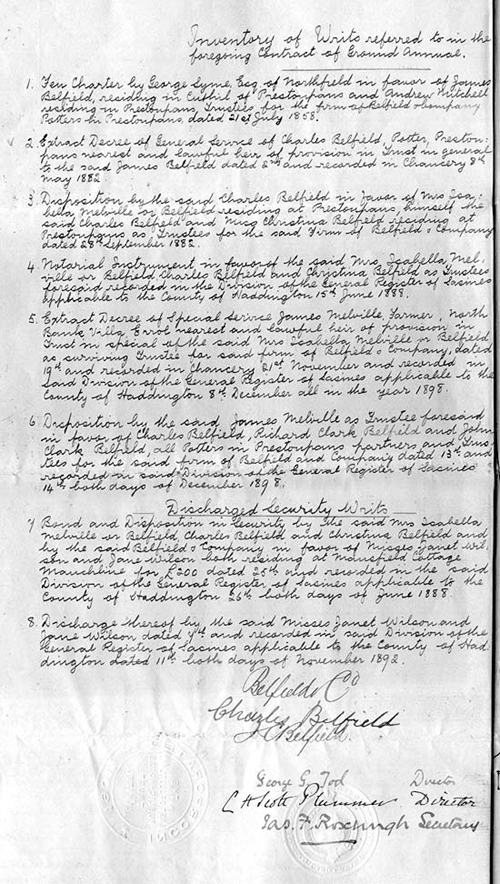 Inventory of Writs referred to in the
foregoing Contract of Ground Annual.
1. Feu Charter by George Syme, Esq. of Northfield in favor of James
Belfield, residing in Cuthill of Prestonpans and Andrew Mitchell
residing in Prestonpans, Trustees for the firm of Belfield & Company
Potters in Prestonpans, dated 21st July 1858.
2. Extract Decree of General Service of Charles Belfield, Potter, Preston:
pans nearest and lawful heir of provision in Trust in general
to the said James Belfield dated 2nd and recorded in Chancery 8th
May 1882
3. Disposition by the said Charles Belfield in favor of Mrs Isa:
bella Melville or Belfield residing at Prestonpans, himself the
said Charles Belfield and Miss Christina Belfield residing at
Prestonpans as Trustees for the said Firm of Belfield & Company
dated 28th September 1882.
4. Notarial Instrument in favor of the said Mrs Isabella Mel
ville or Belfield Charles Belfield and Christina Belfield as Trustees
foresaid recorded in the Division of the General Register of Sasines
applicable to the County of Haddington 15th June 1888.
5. Extract Decree of Special Service James Melville Farmer, North
Bank Villa, Errol nearest and lawful heir of provision in
Trust in special of the said Mrs Isabella Melville or Belfield
as surviving Trustee for said firm of Belfield & Company, dated
19th and recorded in Chancery 21st November and recorded in
said Division of the General Register of Sasines applicable to the
County of Haddington 8th December all in the year 1898.
6. Disposition by the said James Melville as Trustee foresaid
in favor of Charles Belfield, Richard Clark Belfield and John
Clark Belfield, all Potters in Prestonpans partners and Trus
tees for the said firm of Belfield and Company dated 13th and
recorded in said Division of the General Register of Sasines
14th both days of December 1898.
Discharged Security Writs
7 Bond and Disposition in Security by the said Mrs Isabella
Melville or Belfield, Charles Belfield and Christina Belfield and
by the said Belfield & Company in favor of Misses Janet Wil
son and Jane Wilson both residing at Cottage
Mauchline for £200 dated 25th and recorded in the said
Division of the General Register of Sasines applicable to the
County of Haddington 26th both days of June 1888.
8. Discharge thereof by the said Misses Janet Wilson and
Jane Wilson dated 4th and recorded in said Division of the
General Register of Sasines applicable to the County of Had
dington dated 11th both days of November 1892.
Belfield & Co
Charles Belfield
Belfield.
George G. Tod Director
C H Scott Plummer Director
Jas. F. Roxburgh Secretary